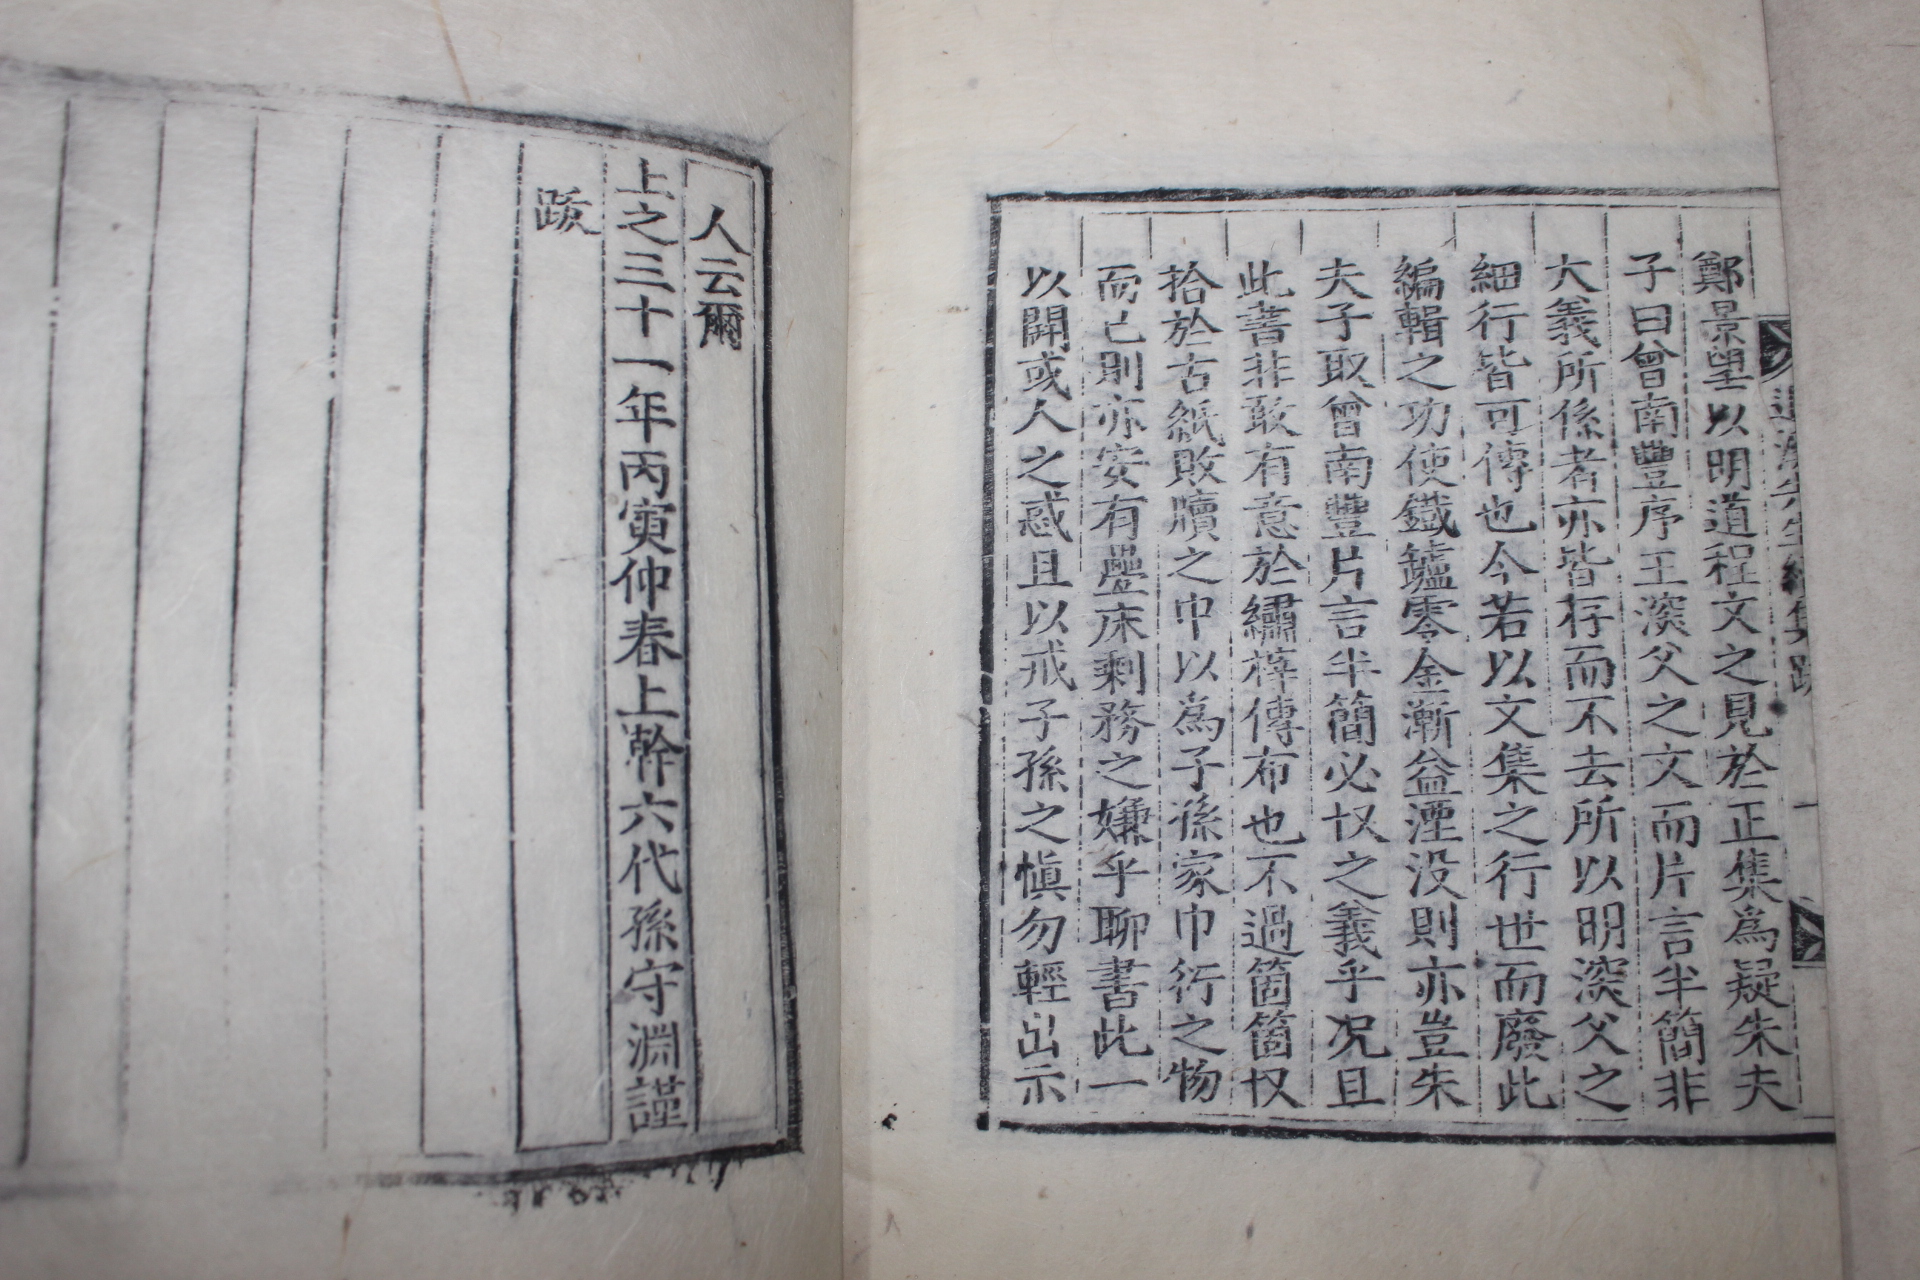 退溪先生續集跋
鄭景望以明道程文之見於正集爲疑朱夫
子曰曾南豐序王深父之文而片言半簡非
大義所係者亦皆存而不去所以明深父之
細行皆可傳也今若以文集之行世而廢此
編輯之功使鐵鑪零金漸益湮没則亦豈朱
夫子取曾南豐片言半簡必収之義乎况且
此書非敢有意於繡梓傳布也不過箇箇収
拾於古紙敗牘之中以爲子孫家巾衍之物
而已則亦安有疊床剩務之嫌乎聊書此一
以開或人之惑且以戒子孫之愼勿輕出示
人云爾
上之三十一年丙寅仲春上幹六代孫守淵謹
跋